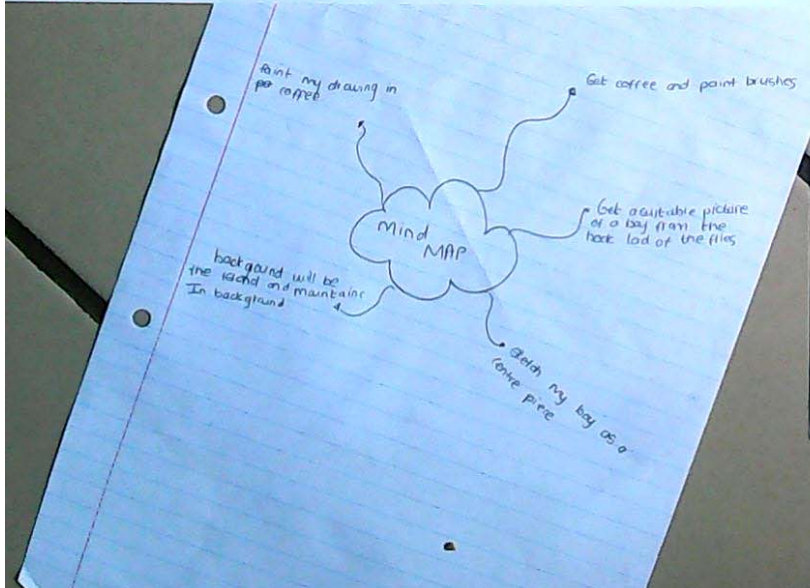 Paint my drawing in
coffee
Get coffee and paint brushes
Mind
MAP
Get a suitable picture
of a boy from the
book lod of the flies
background will be
the and mountains
In background
Sketch my boy as a
centre piece